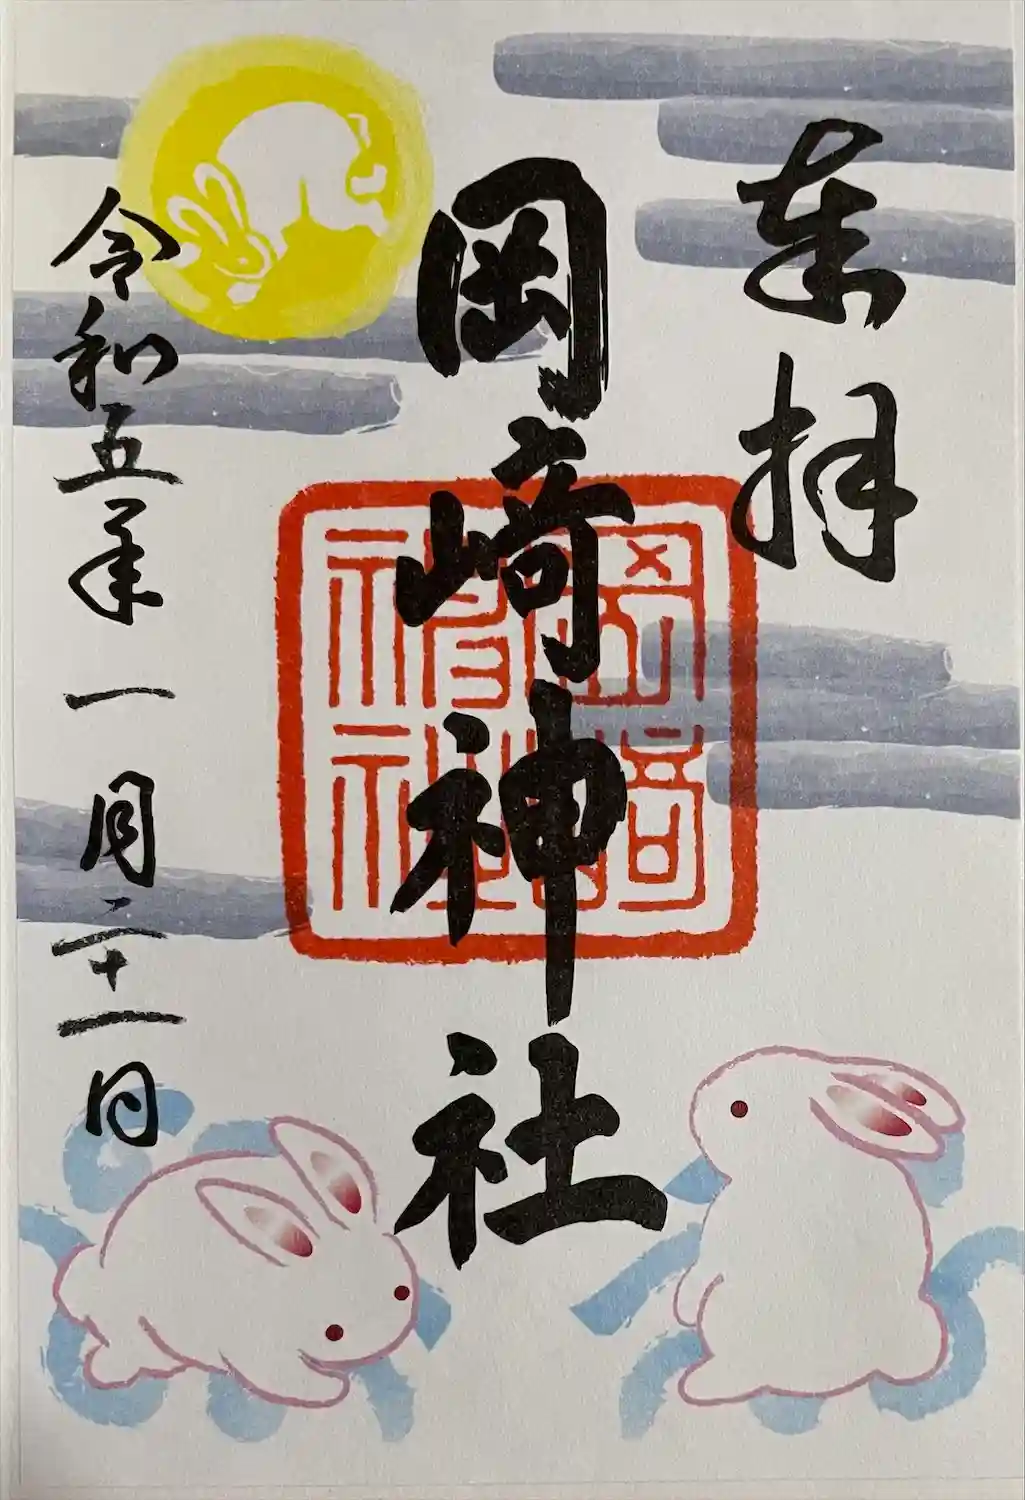 奉拝
岡崎神社
岡﨑神社
令和五年一月二十一日